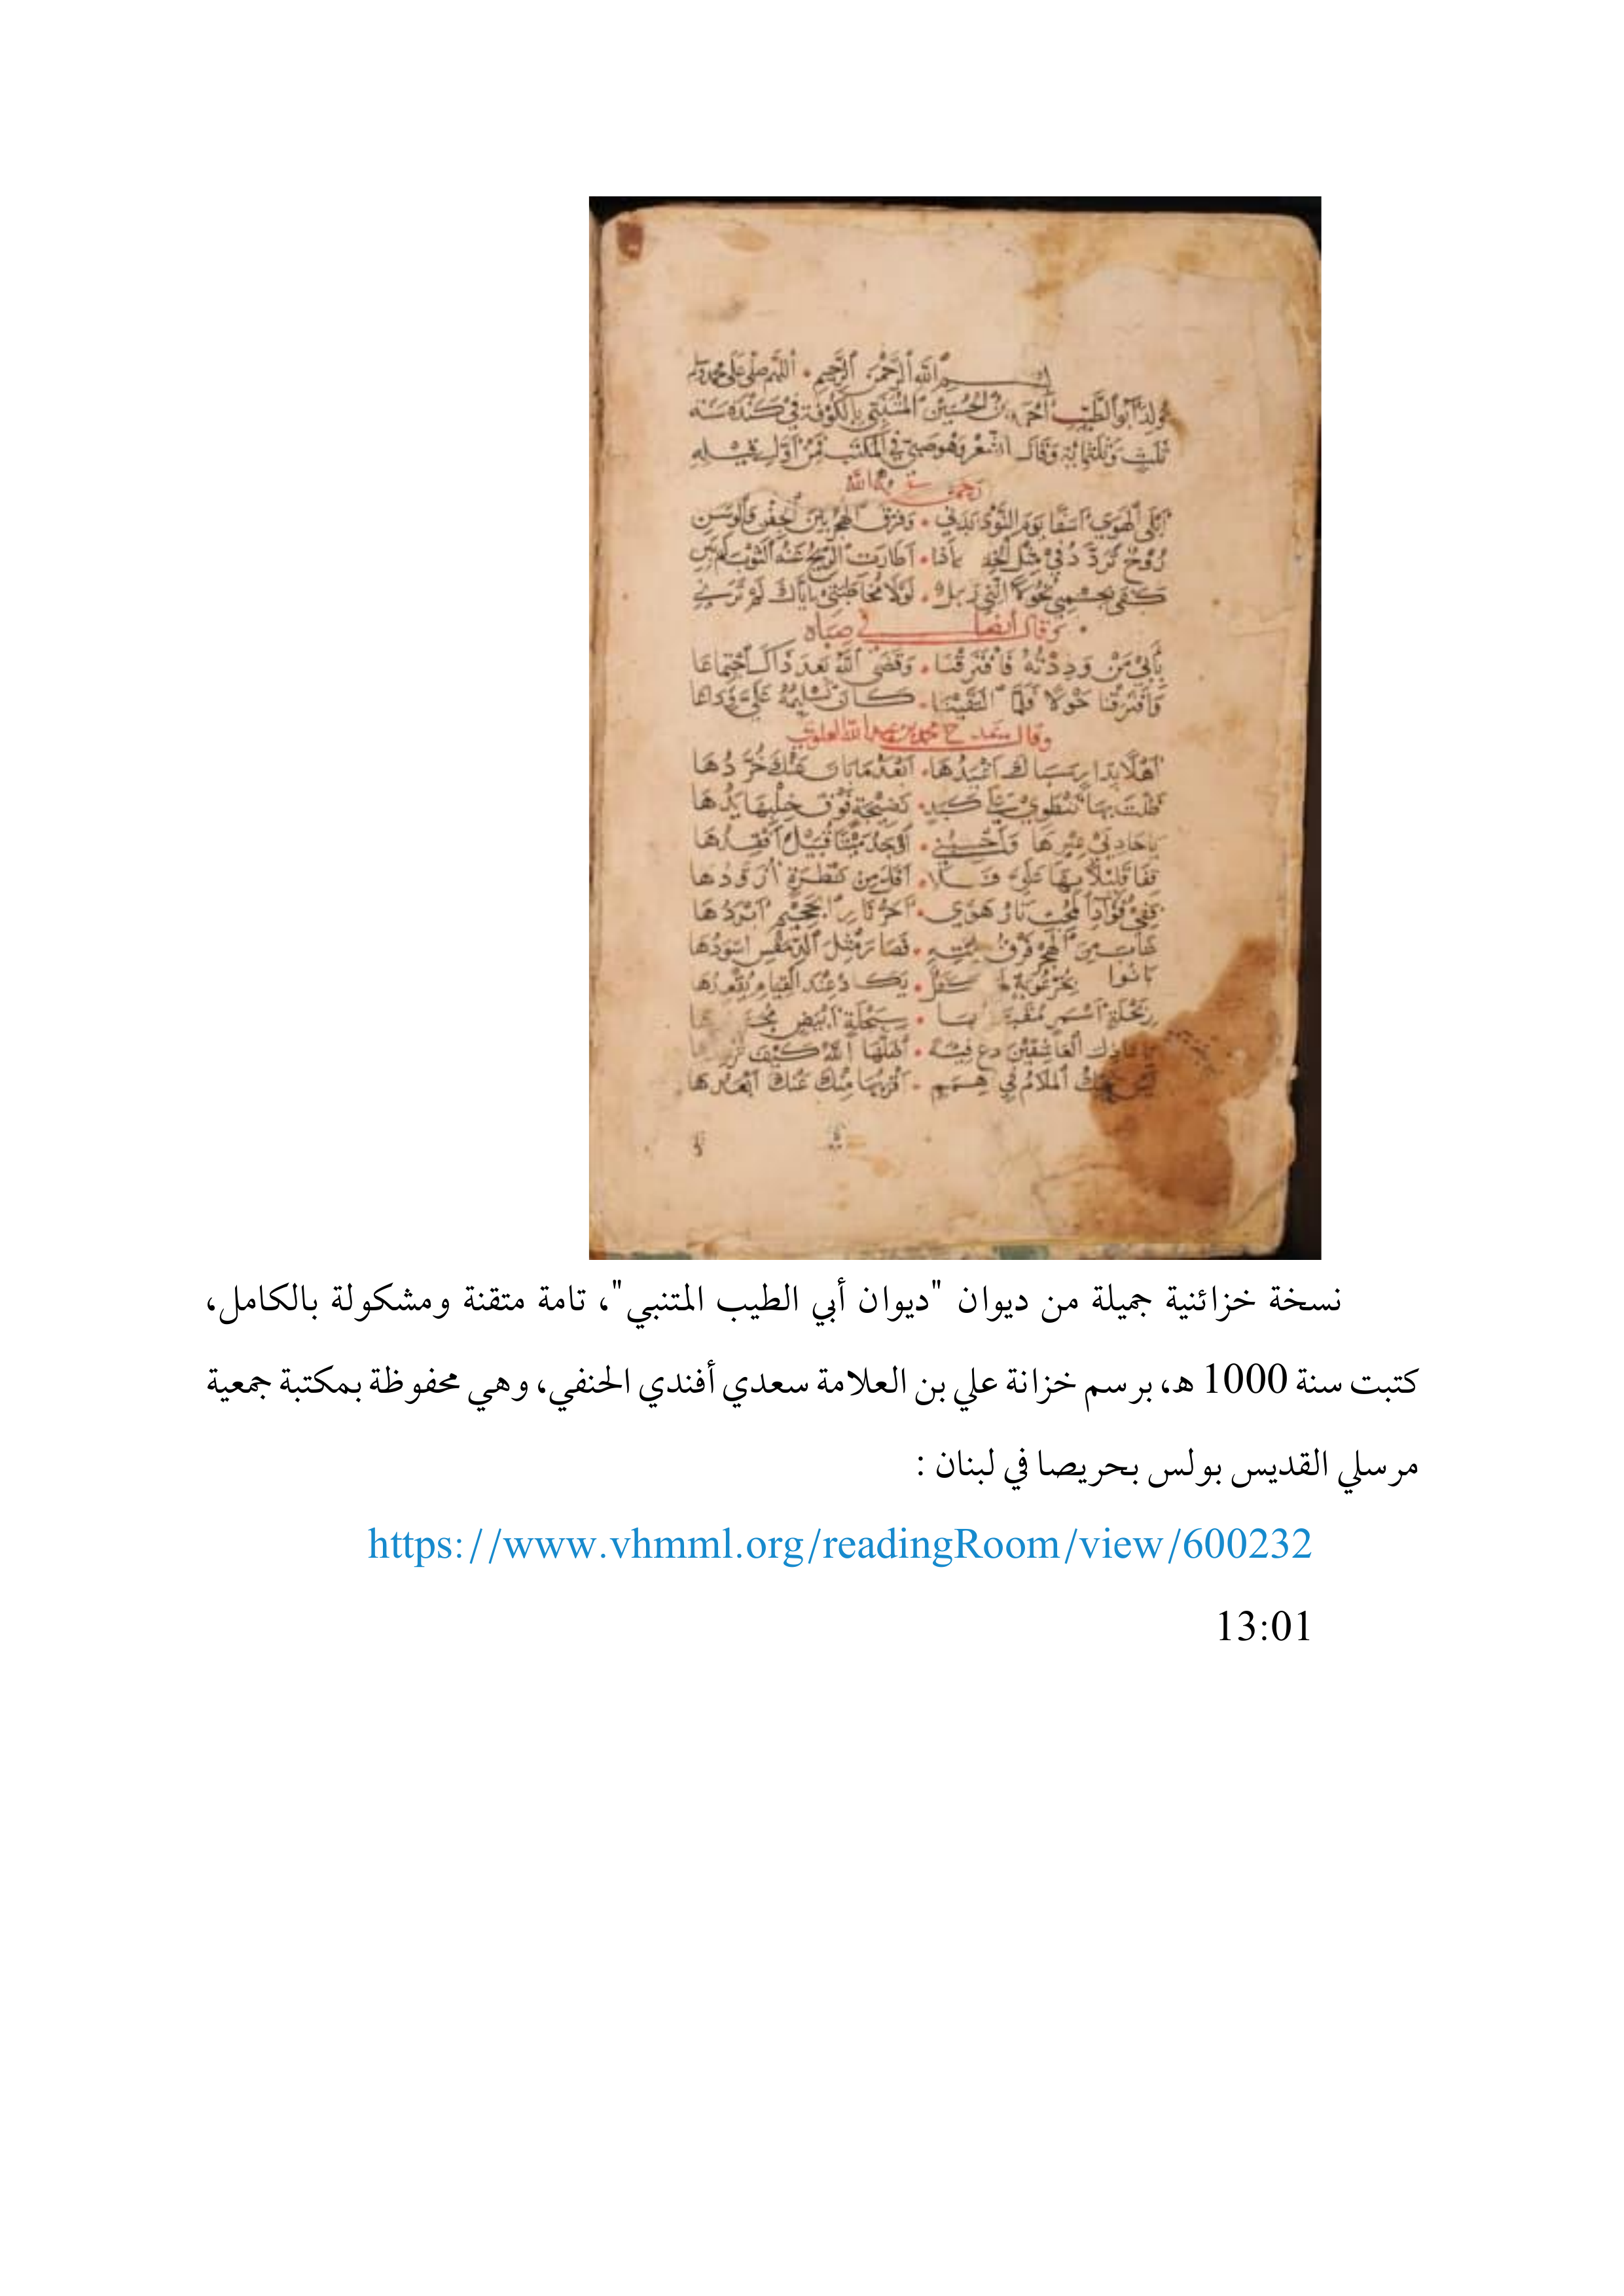 بسم الله الرحمن الرحيم • اللهم صلي على محمد وسلم
ولد أبو الطيب أحمد بن الحسين المتنبي بالكوفة في كندة سنة
ثلث وثلثمائة وقال الشعر وهو صبي في المكتب فمن أول قيله
رحمه الله
أبلى الهوى أسفا يوم النوى بدني • وفرق الهجر بين الجفن والوسن
روح تردد في مثل الخلال إذا • أطارت الريح عنه الثوب لم يبن
كفى بجسمي نحولا أنني رجل • لولا مخاطبتي إياك لم ترني
وقال أيضا في صباه
بأبي من وددته فافترقنا • وقضى الله بعد ذاك اجتماعا
وافترقنا حولا فلما التقينا • كان تسليمه علي وداعا
وقال يمدح محمد بن عبيد الله العلوي
أهلا بدار سباك أغيدها • أبعد ما بان عنك خردها
ظلت بها تنطوي على كبد • نضيجة فوق خلبها يدها
يا حاديي عيرها وأحسبني • أوجد ميتا قبيل أفقدها
قفا قليلا بها علي فلا • أقل من نظرة أزودها
ففي فؤاد المحب نار هوى • أحر نار الجحيم أبردها
شاب من الهجر فرق لمته • فصار مثل الدمقس أسودها
بانوا بخرعوبة لها كفل • يكاد عند القيام يقعدها
ربحلة أسمر مقبلها • سبحلة أبيض
يا عاذل العاشقين دع فئة • أضلها الله كيف
ليس يحيك الملام في همم • أقربها منك عنك أبعدها
نسخة خزائنية جميلة من ديوان "ديوان أبي الطيب المتنبي"، تامة متقنة ومشكولة بالكامل،
كتبت سنة 1000 هـ، برسم خزانة علي بن العلامة سعدي أفندي الحنفي، وهي محفوظة بمكتبة جمعية
مرسلي القديس بولس بحريصا في لبنان :
https://www.vhmml.org/readingRoom/view/600232
13:01